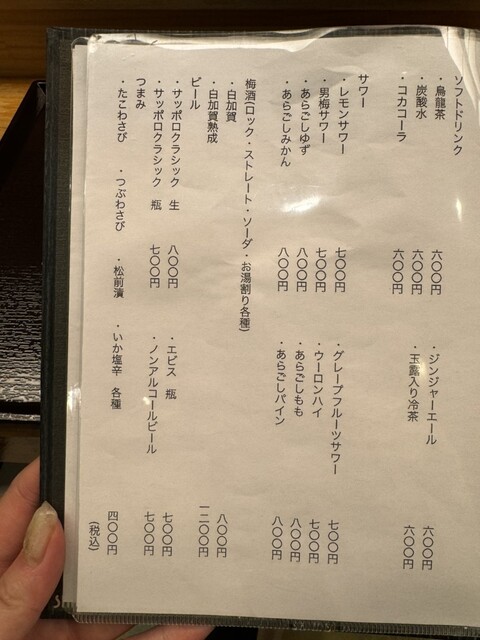 ソフトドリンク
・烏龍茶 六〇〇円 ・ジンジャーエール 六〇〇円
・炭酸水 六〇〇円 ・玉露入り冷茶 六〇〇円
・コカコーラ 六〇〇円
サワー
・レモンサワー 七〇〇円 ・グレープフルーツサワー 七〇〇円
・男梅サワー 七〇〇円 ・ウーロンハイ 七〇〇円
・あらごしゆず 八〇〇円 ・あらごしもも 八〇〇円
・あらごしみかん 八〇〇円 ・あらごしパイン 八〇〇円
梅酒(ロック・ストレート・ソーダ・お湯割り各種)
・白加賀 八〇〇円
・白加賀熟成 一二〇〇円
ビール
・サッポロクラシック 生 八〇〇円 ・エビス 瓶 七〇〇円
・サッポロクラシック 瓶 七〇〇円 ・ノンアルコールビール 七〇〇円
つまみ
・たこわさび ・つぶわさび ・松前漬 ・いか塩辛 各種 四〇〇円
(税込)